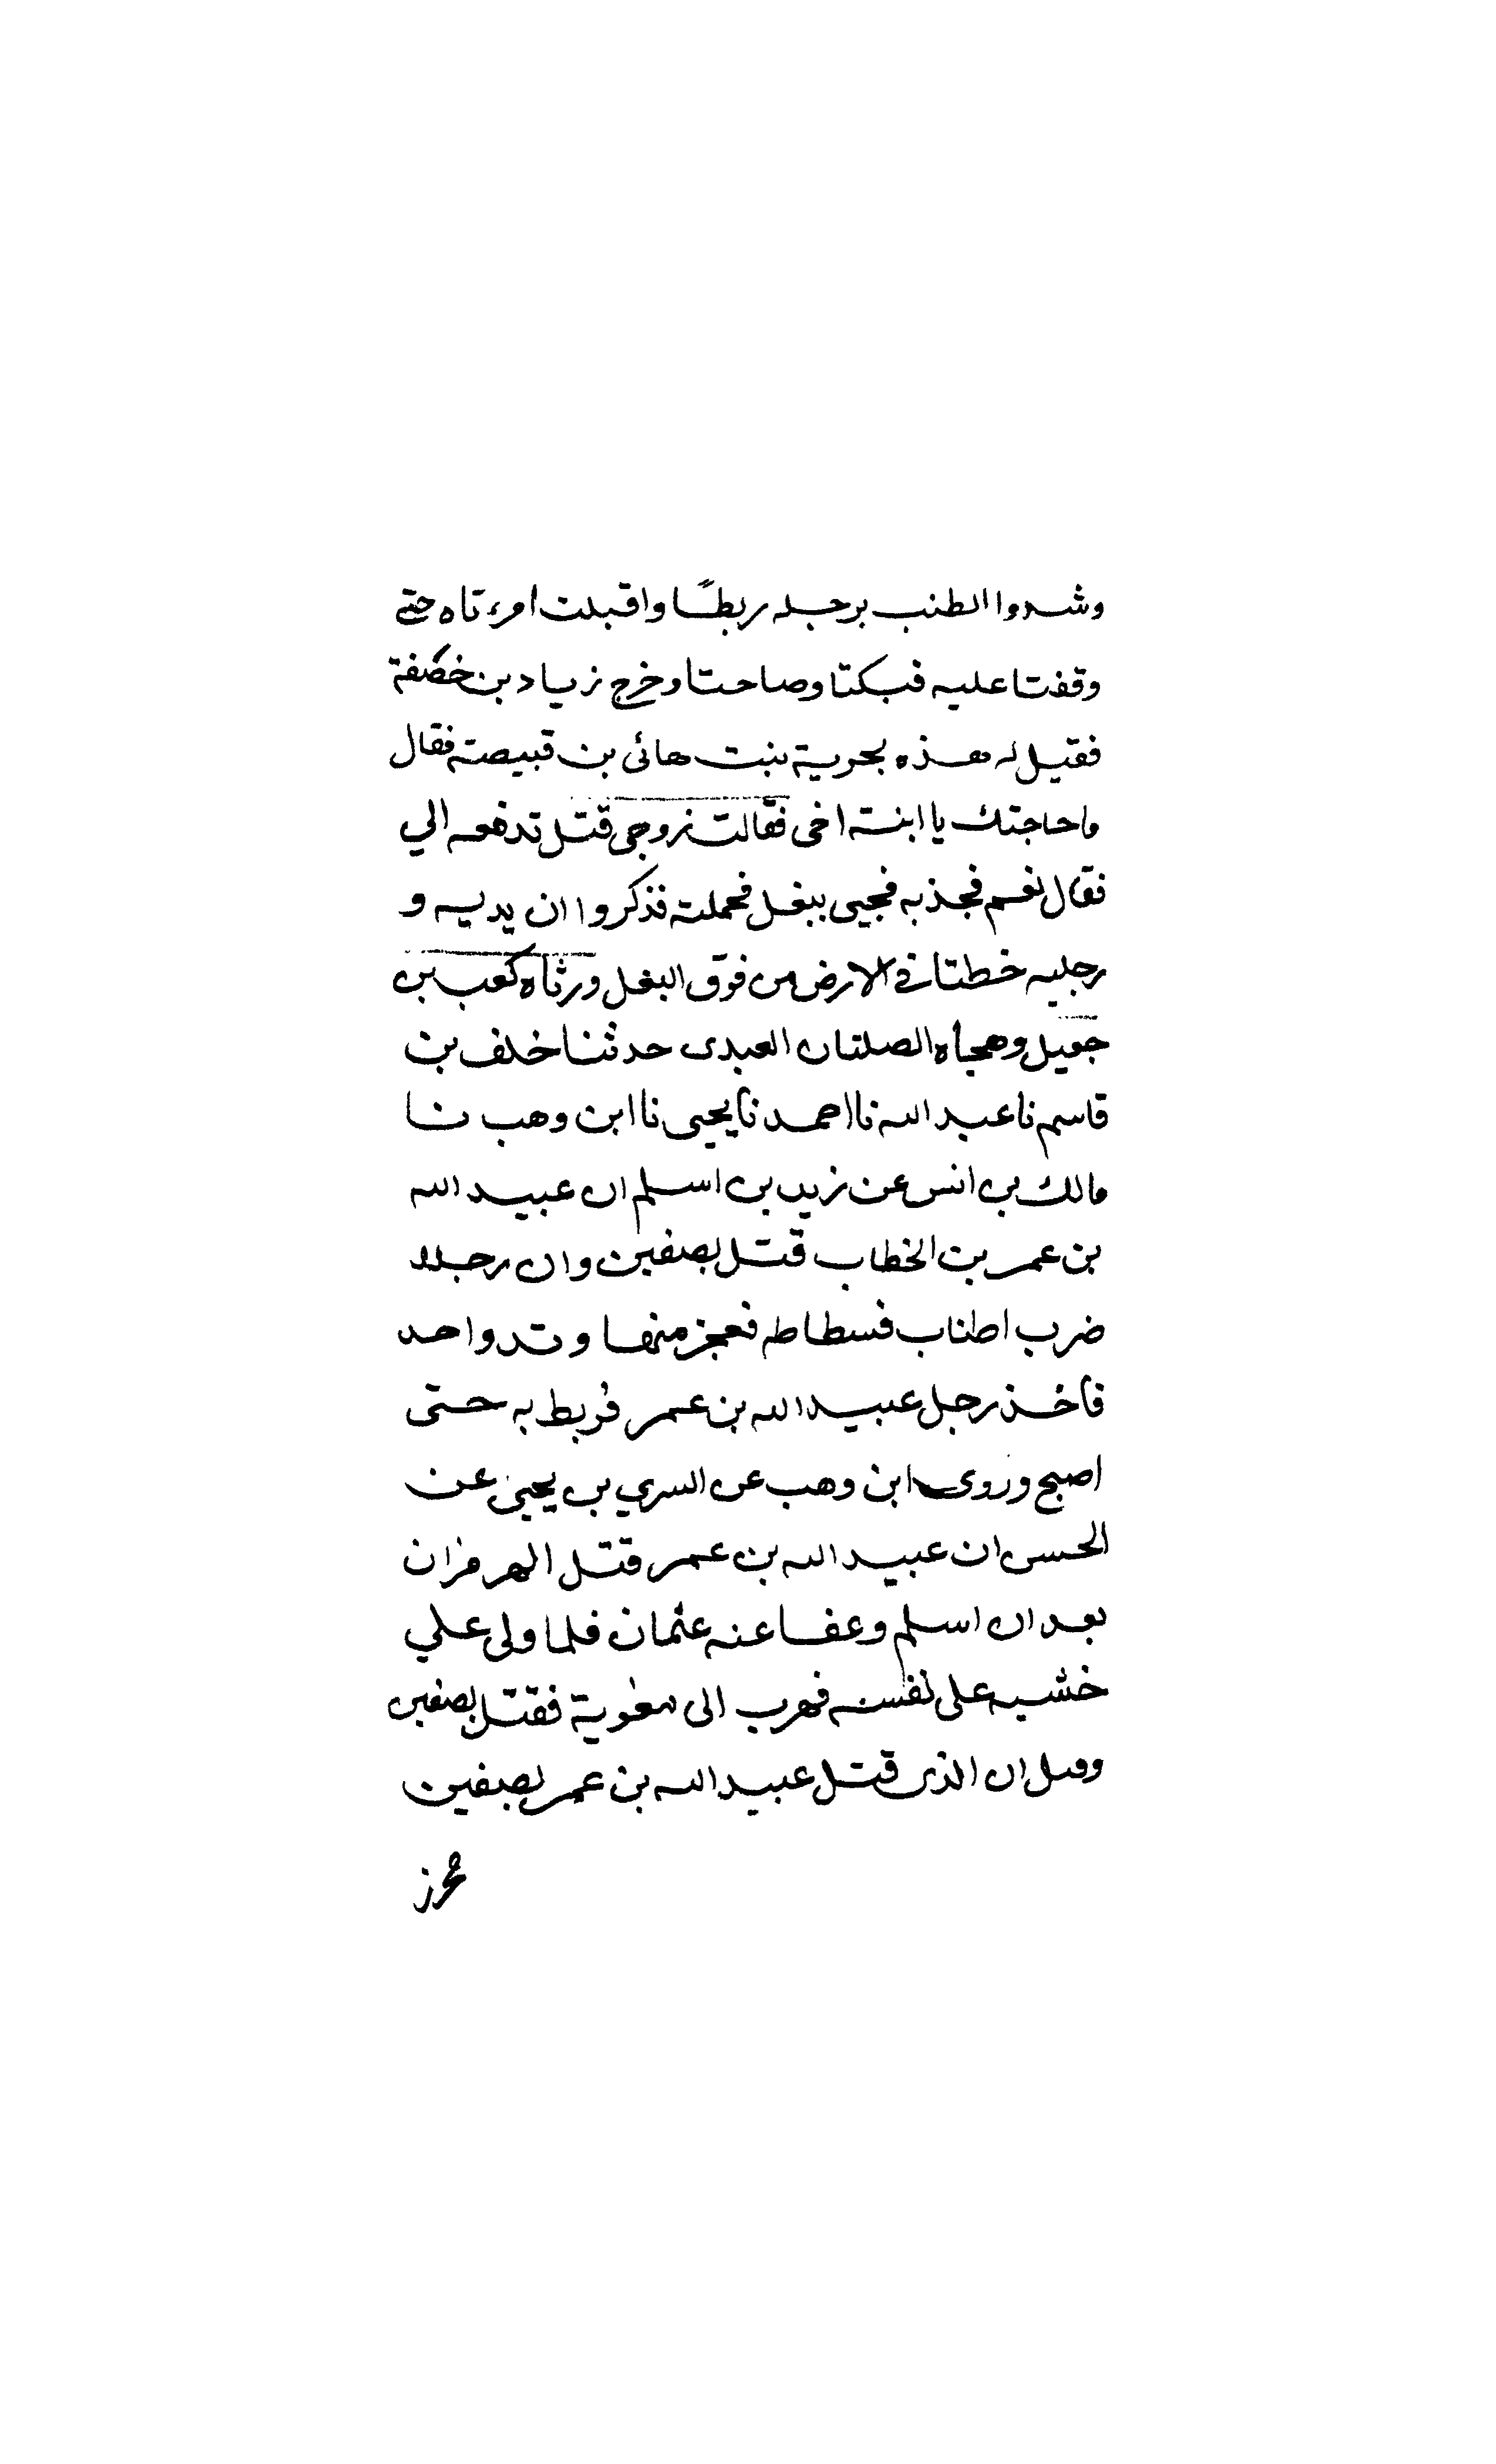 وشدوا الطنب برجله ربطًا واقبلت امرءتاه حتى
وقفتا عليه فبكتا وصاحتا وخرج زياد بن خصفة
فقيل له هذه بحرية بنت هائى بن قبيصة فقال
ما حاجتك يا ابنة اخى فقالت زوجى قتل تدفعه الي
فقال نعم فجذ به فجيى ببغل فحملته فذكروا ان يديه و
رجليه خطتا في الارض من فوق البغل ورثاه كعب بن
جعيل وهجاه الصلتان العبدى حدثنا خلف بن
قاسم نا عبد الله نا احمد نا يحيى نا ابن وهب نا
مالك بن انس عن زيد بن اسلم ان عبيد الله
بن عمر بن الخطاب قتل بصفين وان رجلا
ضرب اطناب فسطاطه فعجز منها وتد واحد
فاخذ رجل عبيد الله بن عمر فربط به حتى
اصبح وروى ابن وهب عن السري بن يحيى عن
الحسن ان عبيد الله بن عمر قتل الهرمزان
بعد ان اسلم وعفا عنه عثمان فلما ولى علي
خشيه على نفسه فهرب الى معوية فقتل بصفين
وقيل ان الذى قتل عبيد الله بن عمر بصفين
محرز